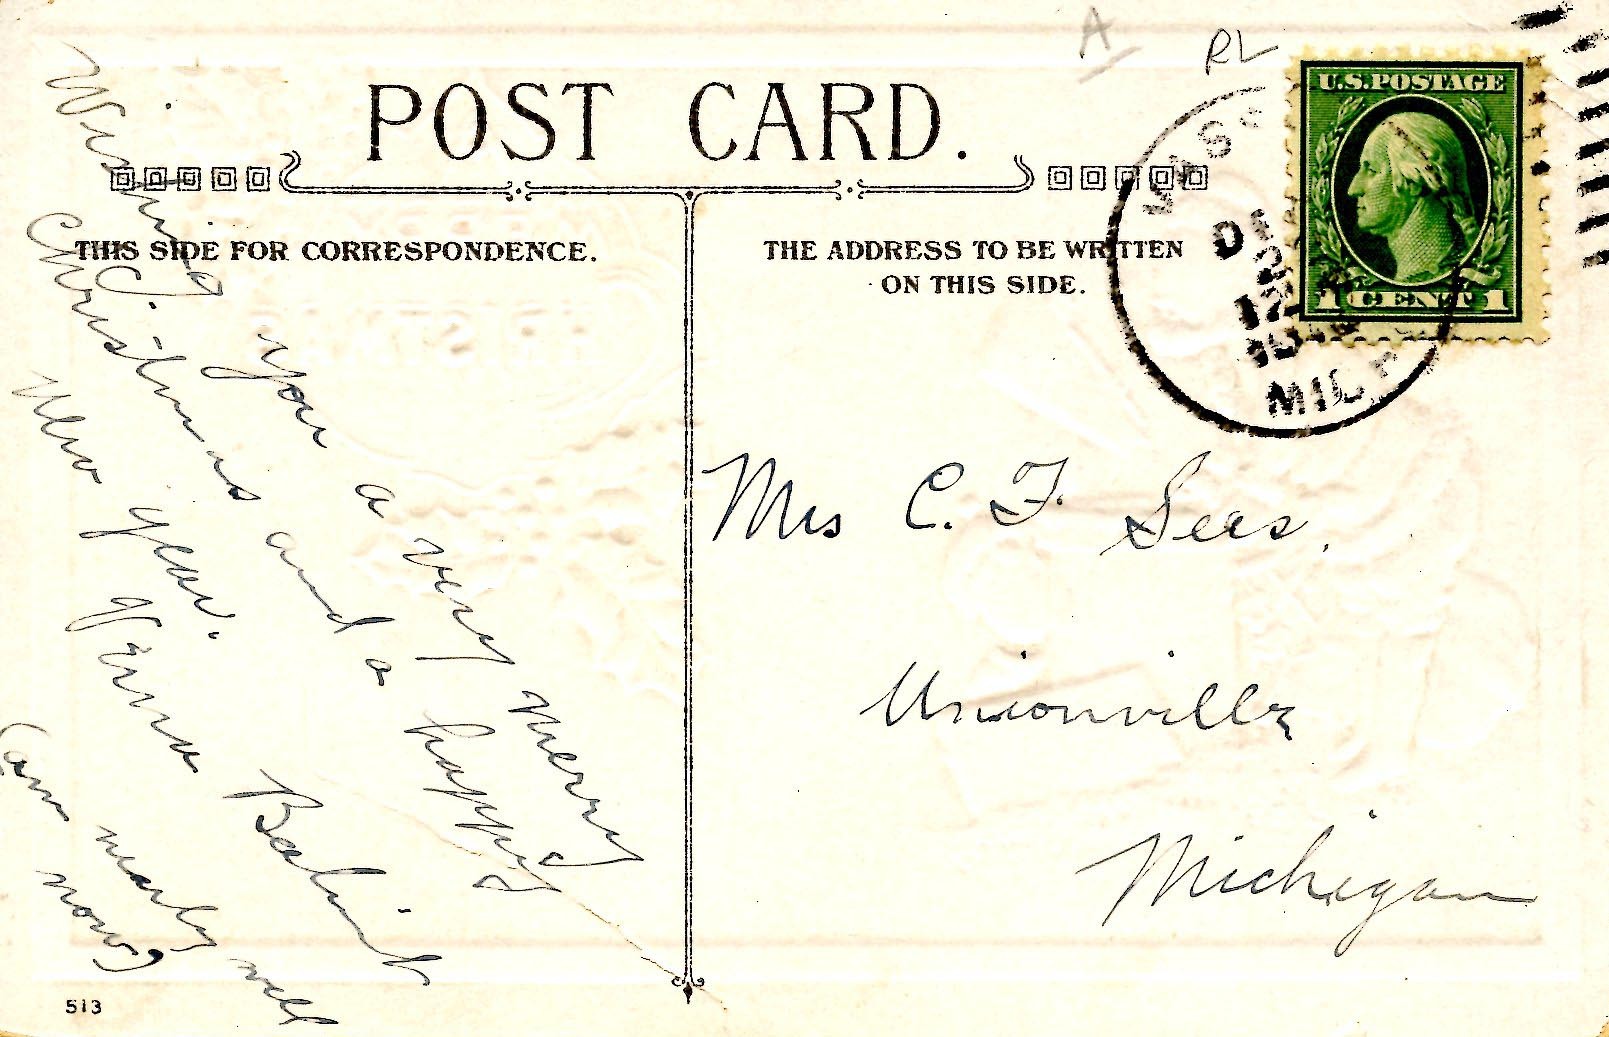 A
RL
POST CARD.
THIS SIDE FOR CORRESPONDENCE.
THE ADDRESS TO BE WRITTEN
ON THIS SIDE.
U.S.POSTAGE
1 CENT 1
MICH
Wishing you a very merry
Christmas and a happy
New year.
Balint
(am nearly well
now)
Mrs C. F. Sees.
Unionville
Michigan
513